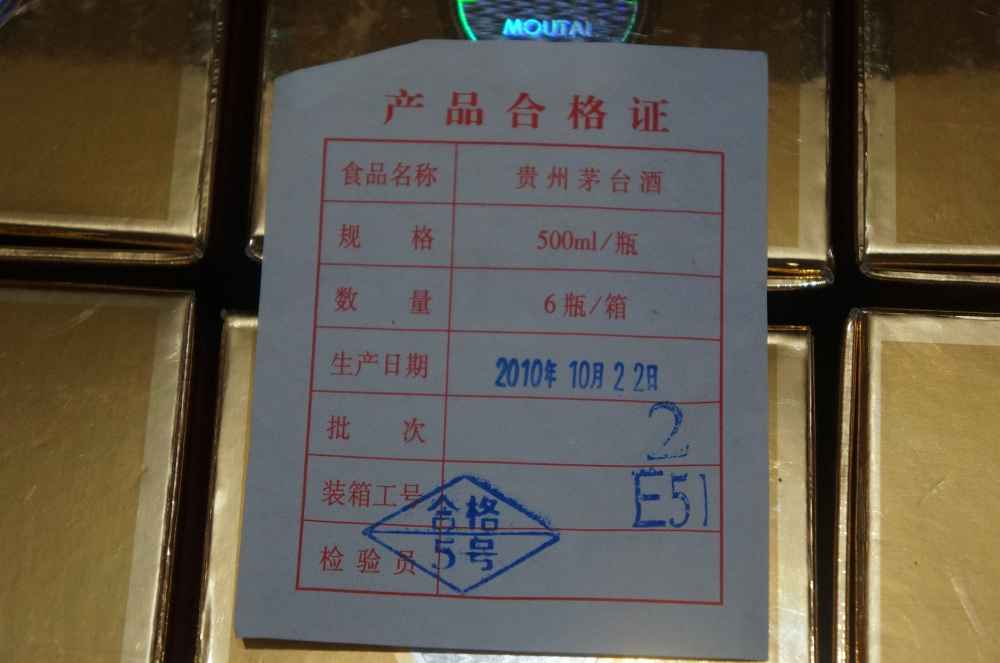 MOUTAI
产品合格证
食品名称 贵州茅台酒
规 格 500ml/瓶
数 量 6瓶/箱
生产日期 2010年10月22日
批 次 2
装箱工号 E51
检验员 合格 5号